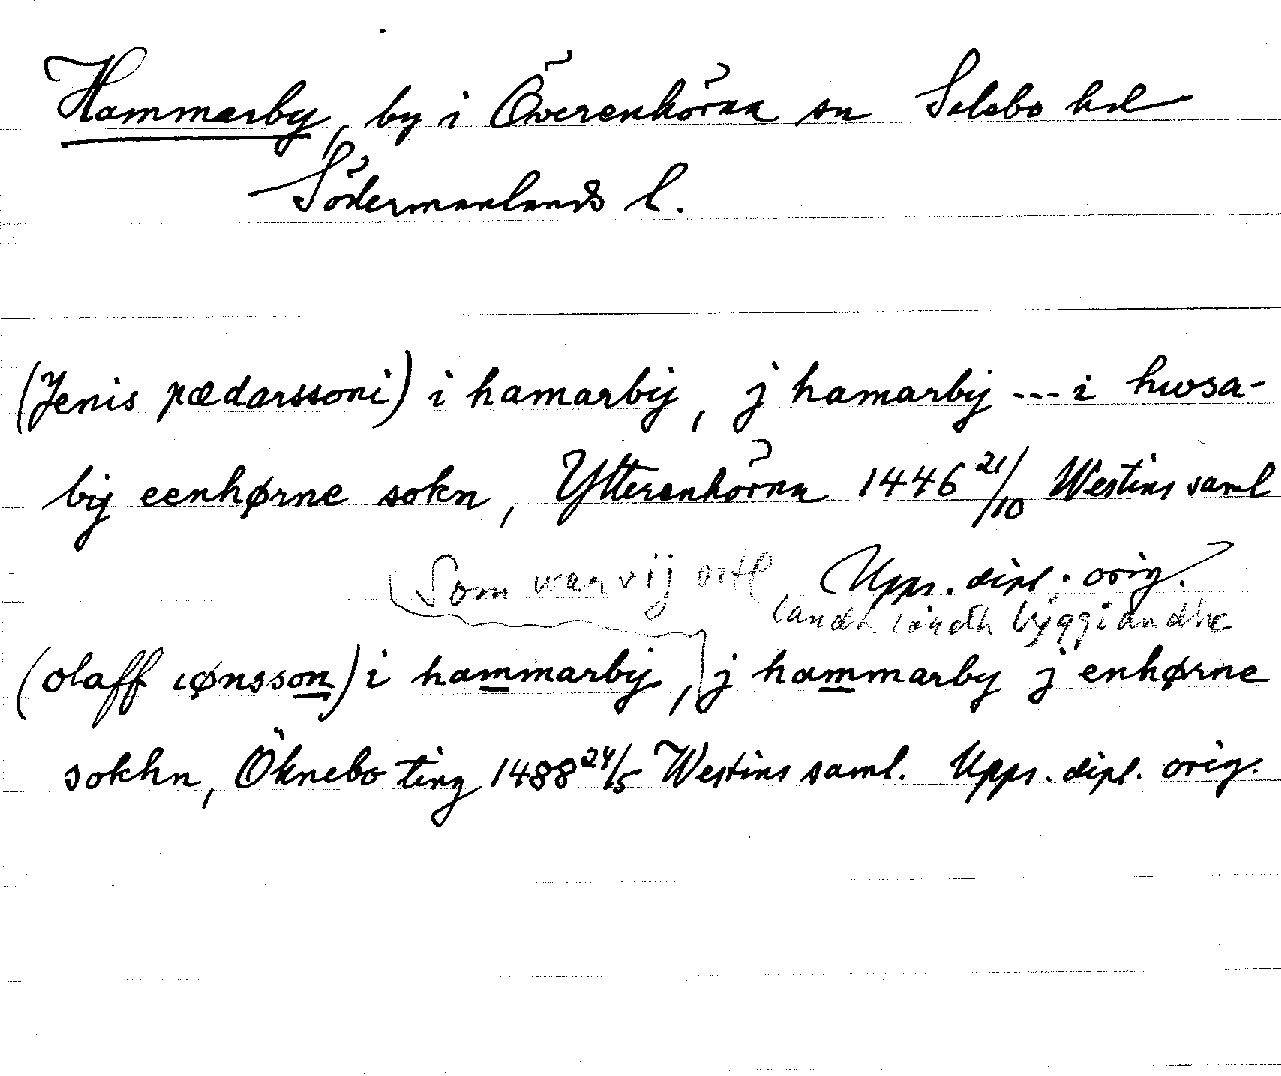 Hammarby, by i Överenhörna sn Selebo hd
Södermanlands l.
(Jenis pædarssoni) i hamarbij, j hamarbij --- i hwsa-
bij eenhørne sokn, Ytterenhörna 1446 21/10 Westins saml
Upps. dipl. orig.
(Som war vij
landh byggiandhe
(olaff iønsson) i hammarbij, j hammarby j enhørne
sokhn, Öknebo ting 1488 24/5 Westins saml. Upps. dipl. orig.